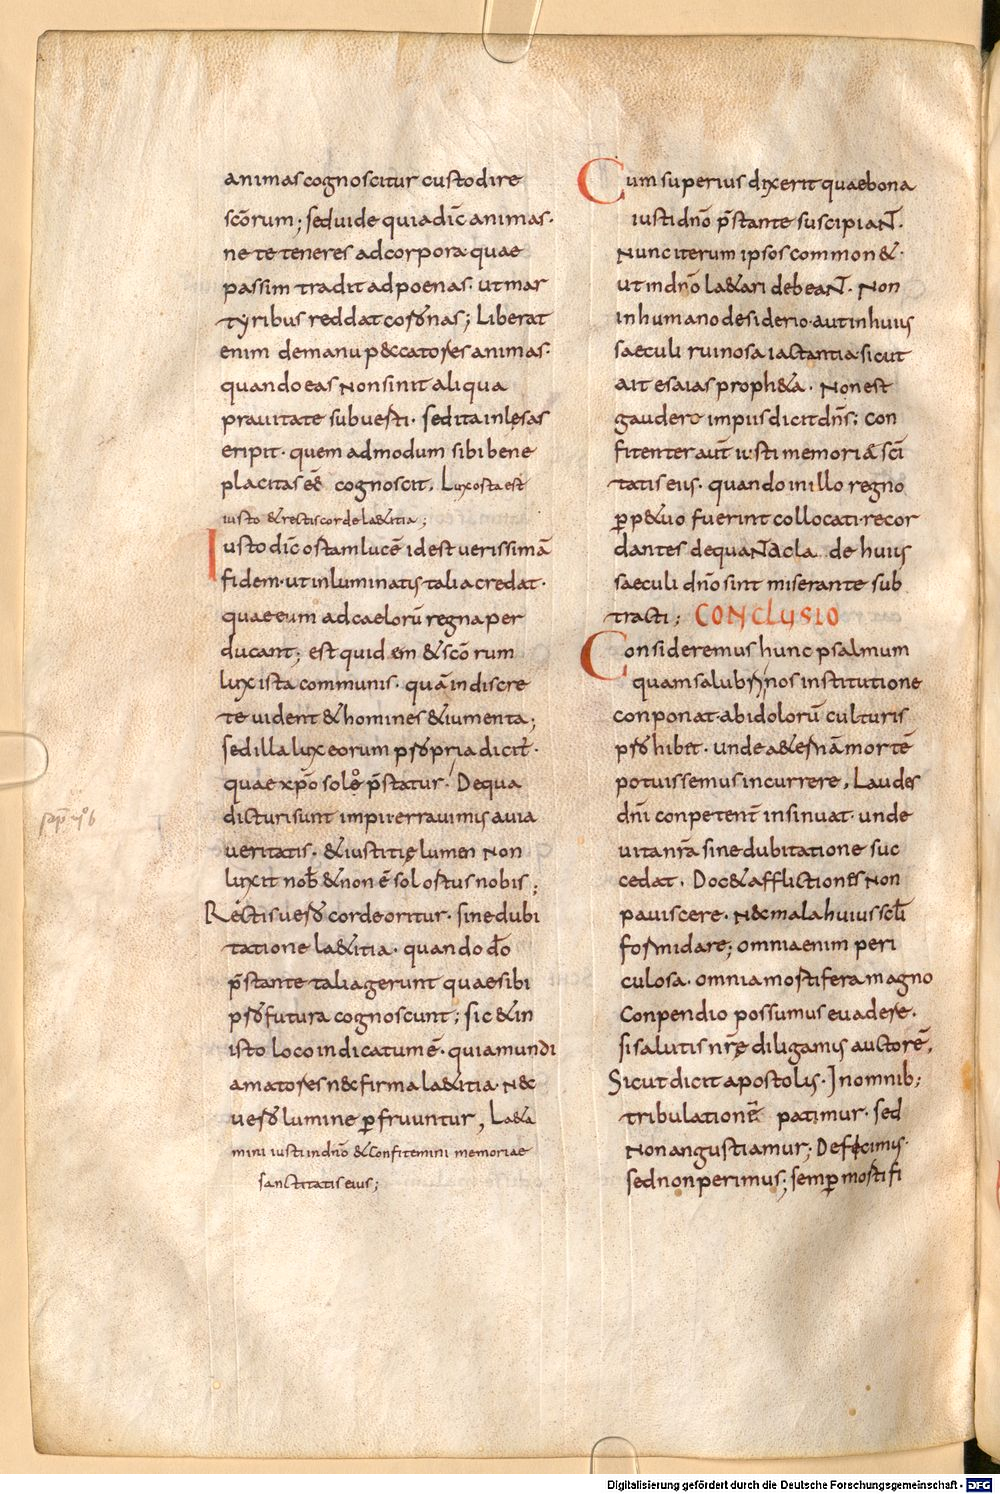 animas cognoscitur custodire
scōrum; sed uide quia dic̄ animas·
ne te teneres ad corpora quae
passim tradit ad poenas· ut mar
tyribus reddat coronas; Liberat
enim de manu peccatores animas·
quando eas non sinit aliqua
prauitate subuerti· sed ita inlęsas
eripit· quem admodum sibi bene
placitas eē cognoscit. Lux orta est
iusto & rectis corde la&itia;
Iusto dic̄ ortam lucē id est uerissimā
fidem· ut inluminatis talia credat·
quae eum ad caelorū regna per
ducant; est quidem & scōrum
lux ista communis· quā indiscre
te uident & homines & iumenta;
sed illa lux eorum propria dicit̄·
quae xp̄o sole p̄statur· De qua
dicturi sunt impii errauimus a uia
ueritatis· & iustitię lumen non
luxit nob̄ & non ē sol ortus nobis;
Rectis uero corde oritur· sine dubi
tatione la&itia· quando dō
p̄stante talia gerunt quae sibi
profutura cognoscunt; sic & in
isto loco indicatum ē· quia mundi
amatores nec firma la&itia· nec
uero lumine ꝑfruuntur, La&a
mini iusti in dn̄o & confitemini memoriae
sanctitatis eius;
Cum superius dixerit quae bona
iusti dn̄o p̄stante suscipiant·
Nunc iterum ipsos common&·
ut in dn̄o la&ari debeant· Non
in humano desiderio· aut in huius
saeculi ruinosa iactantia· sicut
ait esaias proph&a· Non est
gaudere impiis dicit dn̄s; con
fitenter aut̄ iusti memoriā sc̄i
tatis eius· quando in illo regno
ꝑp&uo fuerint collocati· recor
dantes de quanta cla de huius
saeculi dn̄o sint miserante sub
tracti; CONCLUSIO
Consideremus hunc psalmum
quam salubri nos institutione
conponat· ab idolorū culturis
prohibet· unde a&ernā mortē
potuissemus incurrere, Laudes
dn̄i conpetent̄ insinuat· unde
uita nr̄a sine dubitatione suc
cedat. Doc& afflictiones non
pauiscere· nec mala huius scl̄i
formidare; omnia enim peri
culosa· omnia mortifera magno
Conpendio possumus euadere·
si salutis nr̄ę diligamus auctorē,
Sicut dicit apostolus· In omnib;
tribulationē patimur· sed
Non angustiamur; Deficimus·
sed non perimus; semꝑ mortifi
Digitalisierung gefördert durch die Deutsche Forschungsgemeinschaft - DFG